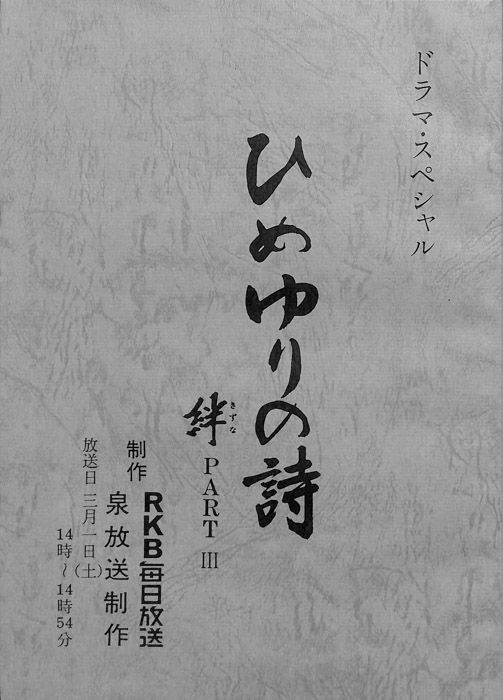 ドラマ・スペシャル
ひめゆりの詩
きずな
絆 PART Ⅲ
制作
RKB毎日放送
泉放送制作
放送日 三月一日(土)
14時～14時54分